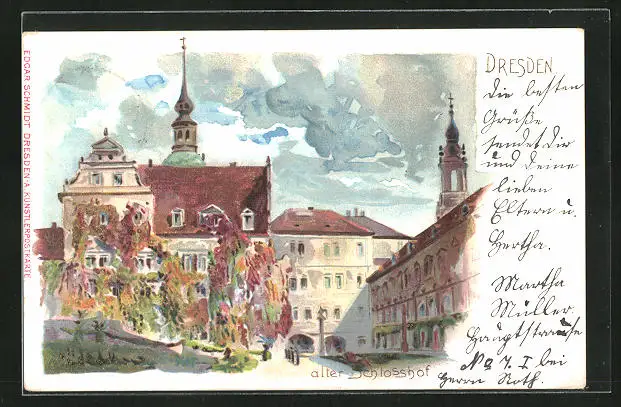 EDGAR SCHMIDT DRESDEN-A KÜNSTLERPOSTKARTE
DRESDEN
Die besten
Grüße
sendet Dir
und Deine
lieben
Eltern u.
Hertha.
Martha
Müller.
Hauptstrasse
No 7. I bei
Herrn Noth.
alter Schlosshof